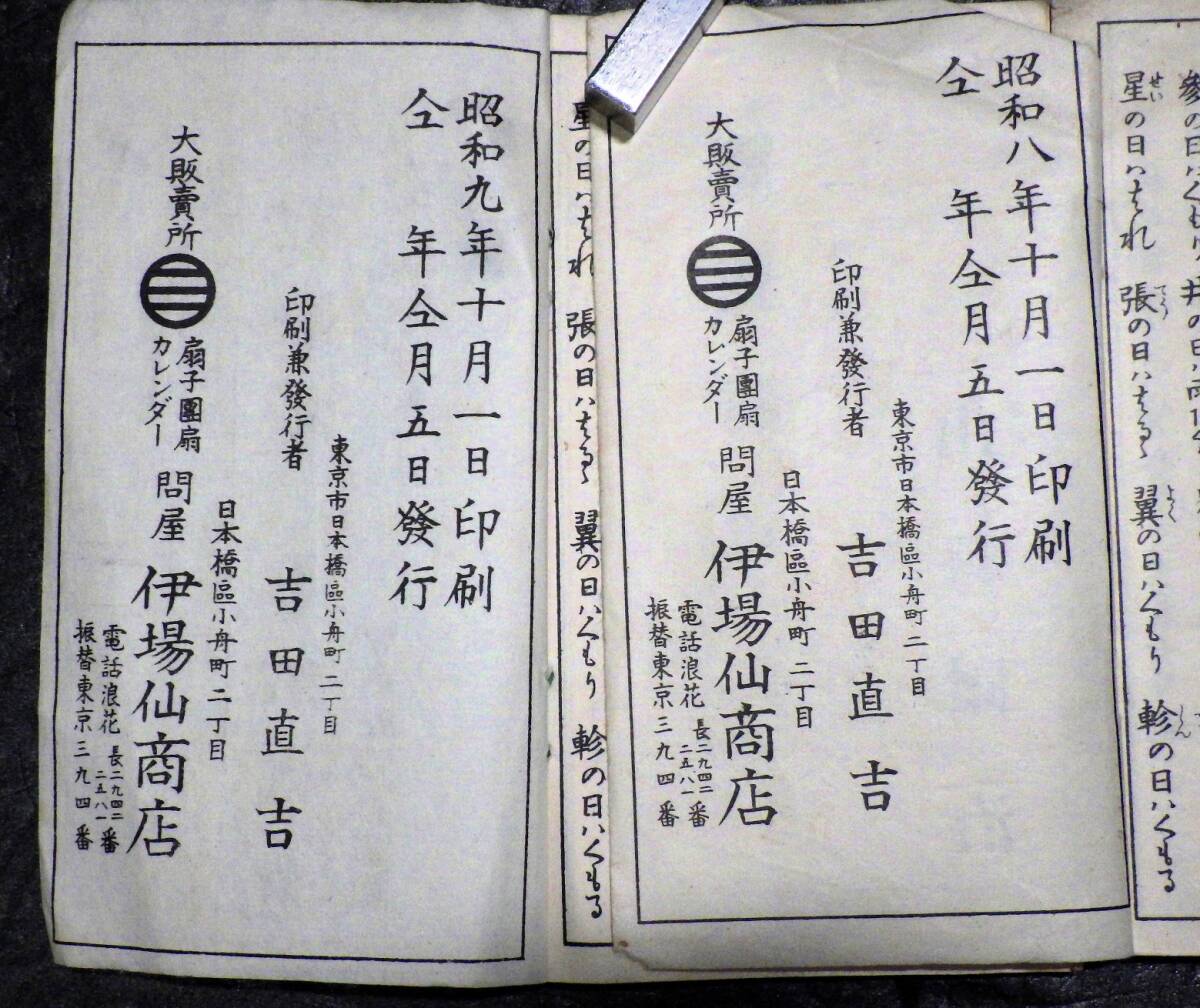 參の日ハくもり 井の日ハ
星の日ハはれ 張の日ハはるゝ 翼の日ハくもり 軫の日ハくもる
せい てう よく しん
昭和八年十月一日印刷
仝 年仝月五日發行
東京市日本橋區小舟町二丁目
印刷兼發行者 吉田直吉
日本橋區小舟町二丁目
大販賣所 扇子團扇 カレンダー 問屋 伊場仙商店
電話浪花 長二九四二 二五八一 番
振替東京三九四番
星の日ハはれ 張の日ハはるゝ 翼の日ハくもり 軫の日ハくもる
昭和九年十月一日印刷
仝 年仝月五日發行
東京市日本橋區小舟町二丁目
印刷兼發行者 吉田直吉
日本橋區小舟町二丁目
大販賣所 扇子團扇 カレンダー 問屋 伊場仙商店
電話浪花 長二九四二 二五八一 番
振替東京三九四番